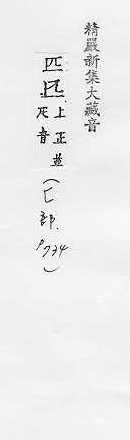 精嚴新集大藏音
匹
上正並
音
部. P734)